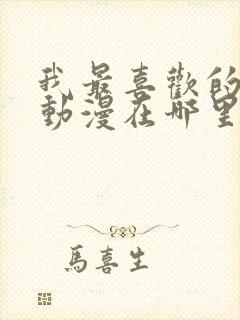 我最喜歡的
動漫在哪里
馬喜生